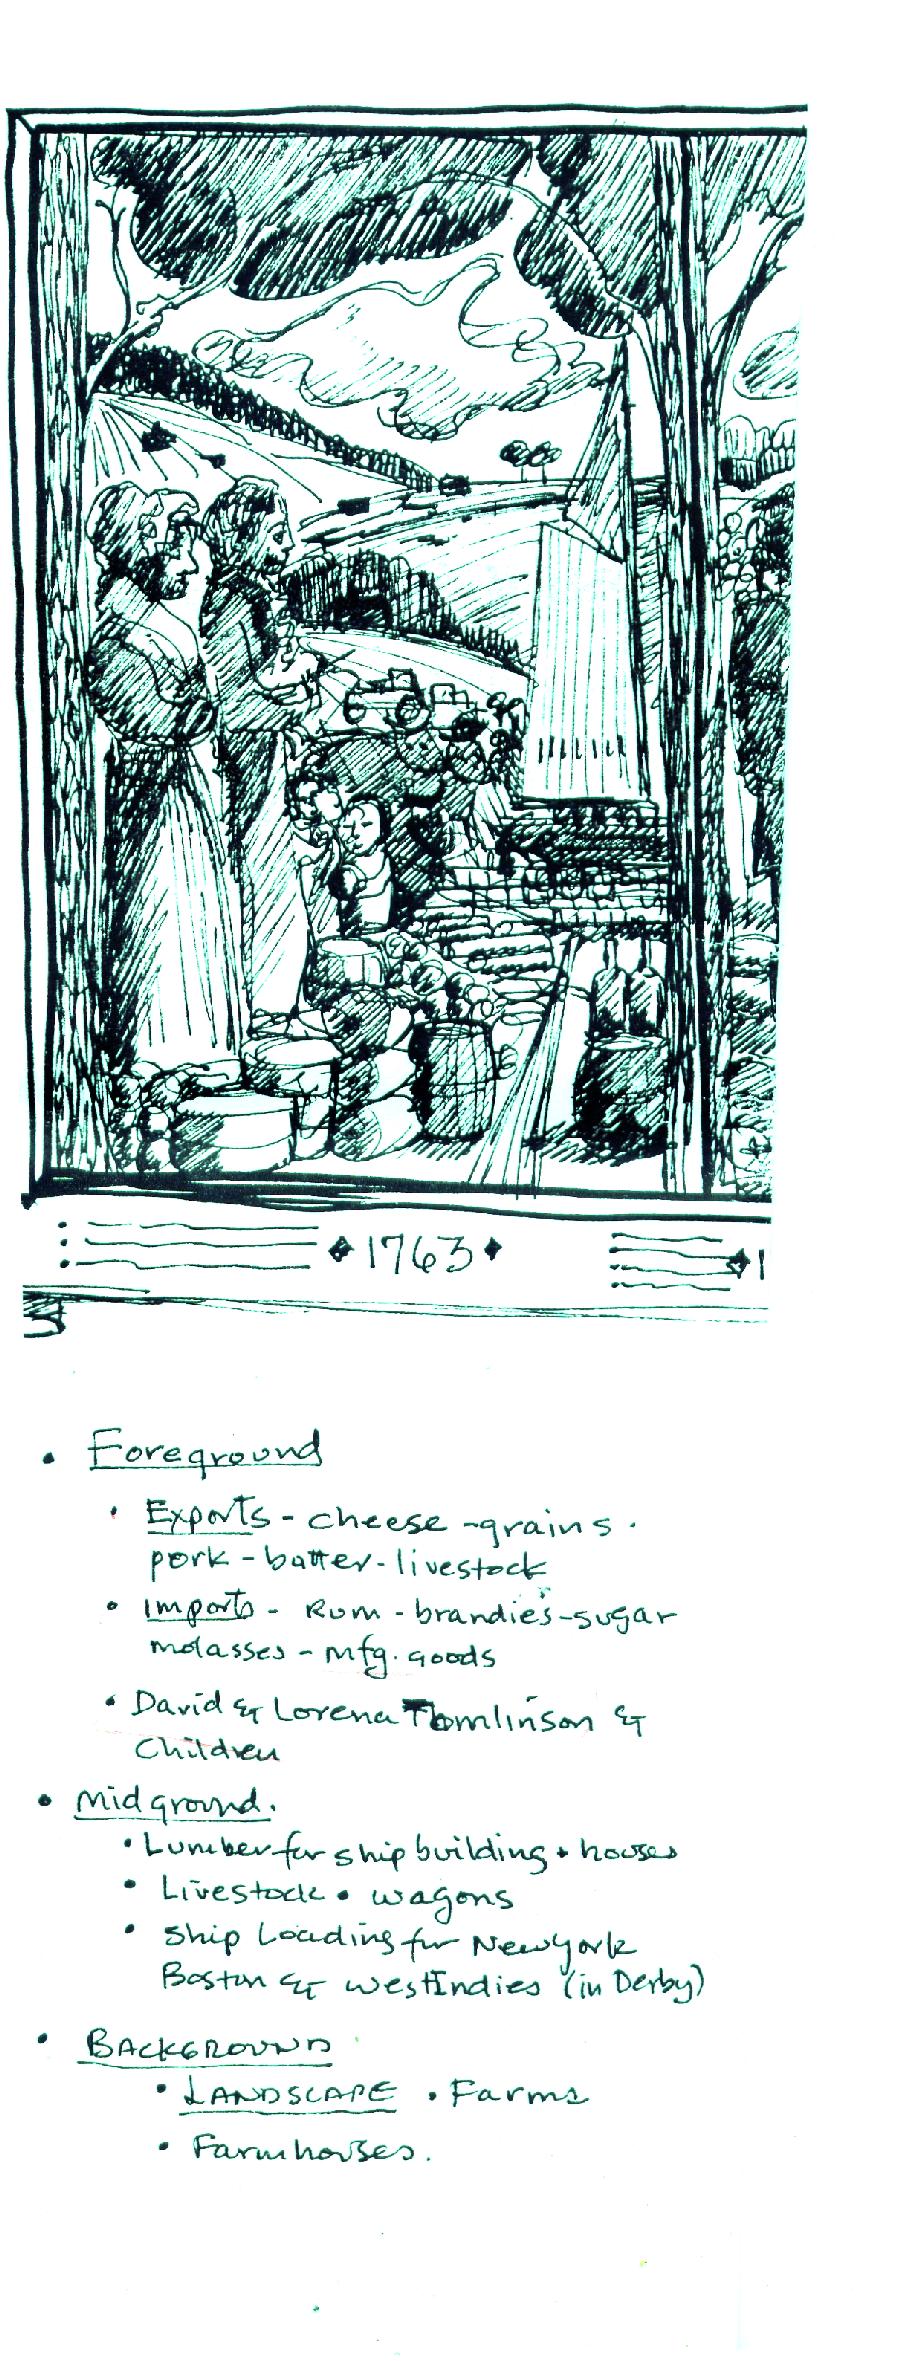 ◆ 1763 ◆
◆ 1
• Foreground
• Exports - cheese - grains.
pork - butter - livestock
• Imports - Rum - brandies - sugar
molasses - mfg. goods
• David & Lorena Tomlinson &
Children
• Midground.
• Lumber for ship building • houses
• Livestock • wagons
• Ship Loading for New York
Boston & West Indies (in Derby)
• BACKGROUND
• LANDSCAPE • Farms
• Farmhouses.